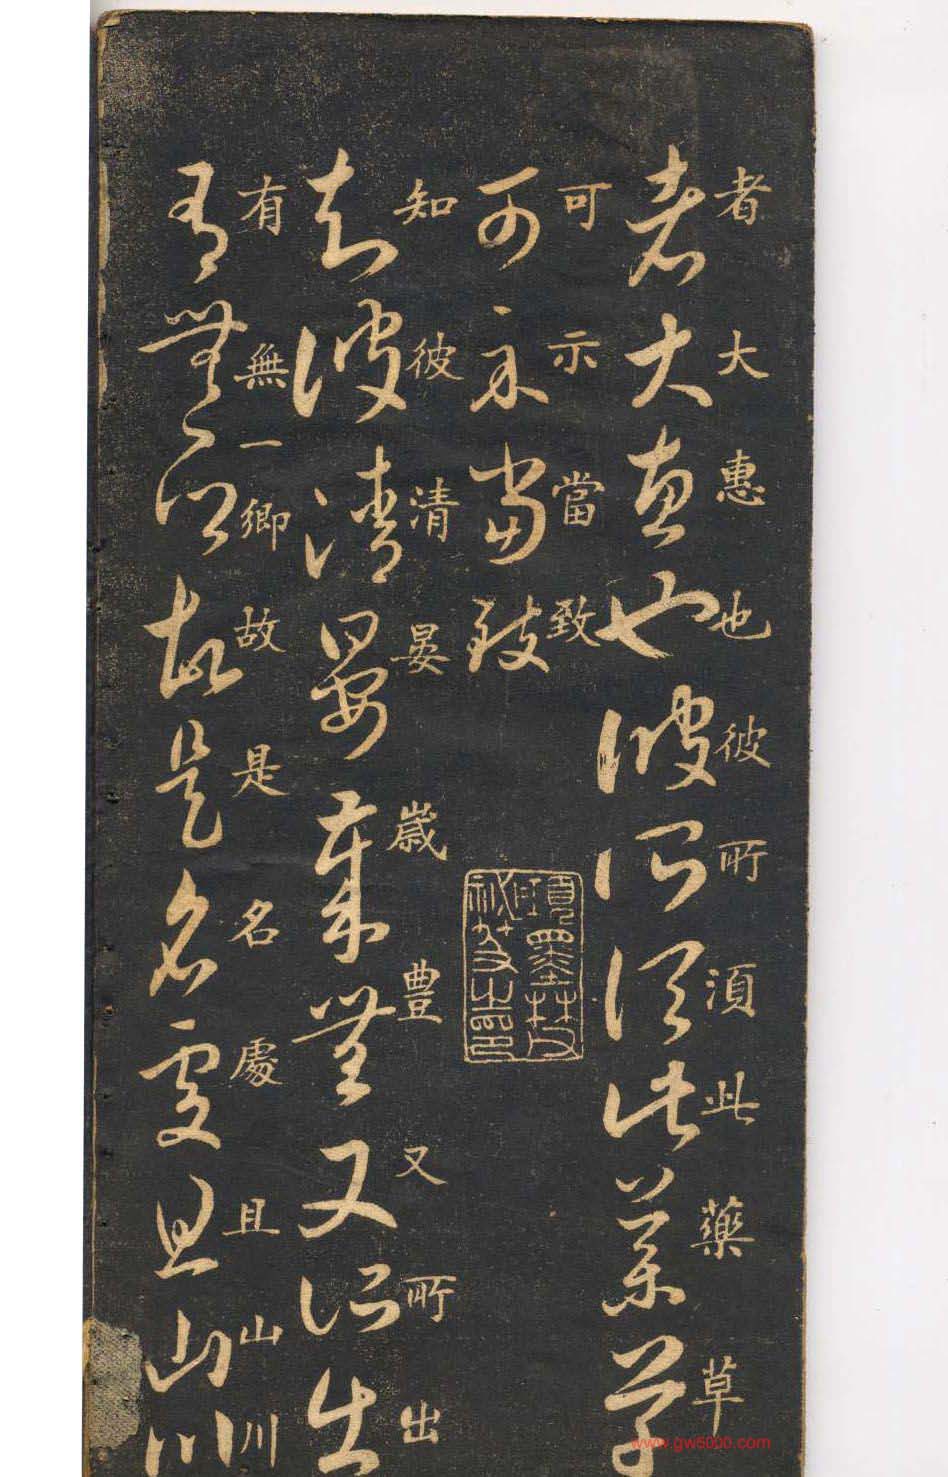 者大惠也彼所須此藥草
者大惠也彼所須此藥草
可示當致
可示當致
項墨林父
祕笈之印
知彼清晏歲豊又所出
知彼清晏歲豊又所出
有無一鄉故是名處且山川
有無一鄉故是名處且山川
www.gw5000.com